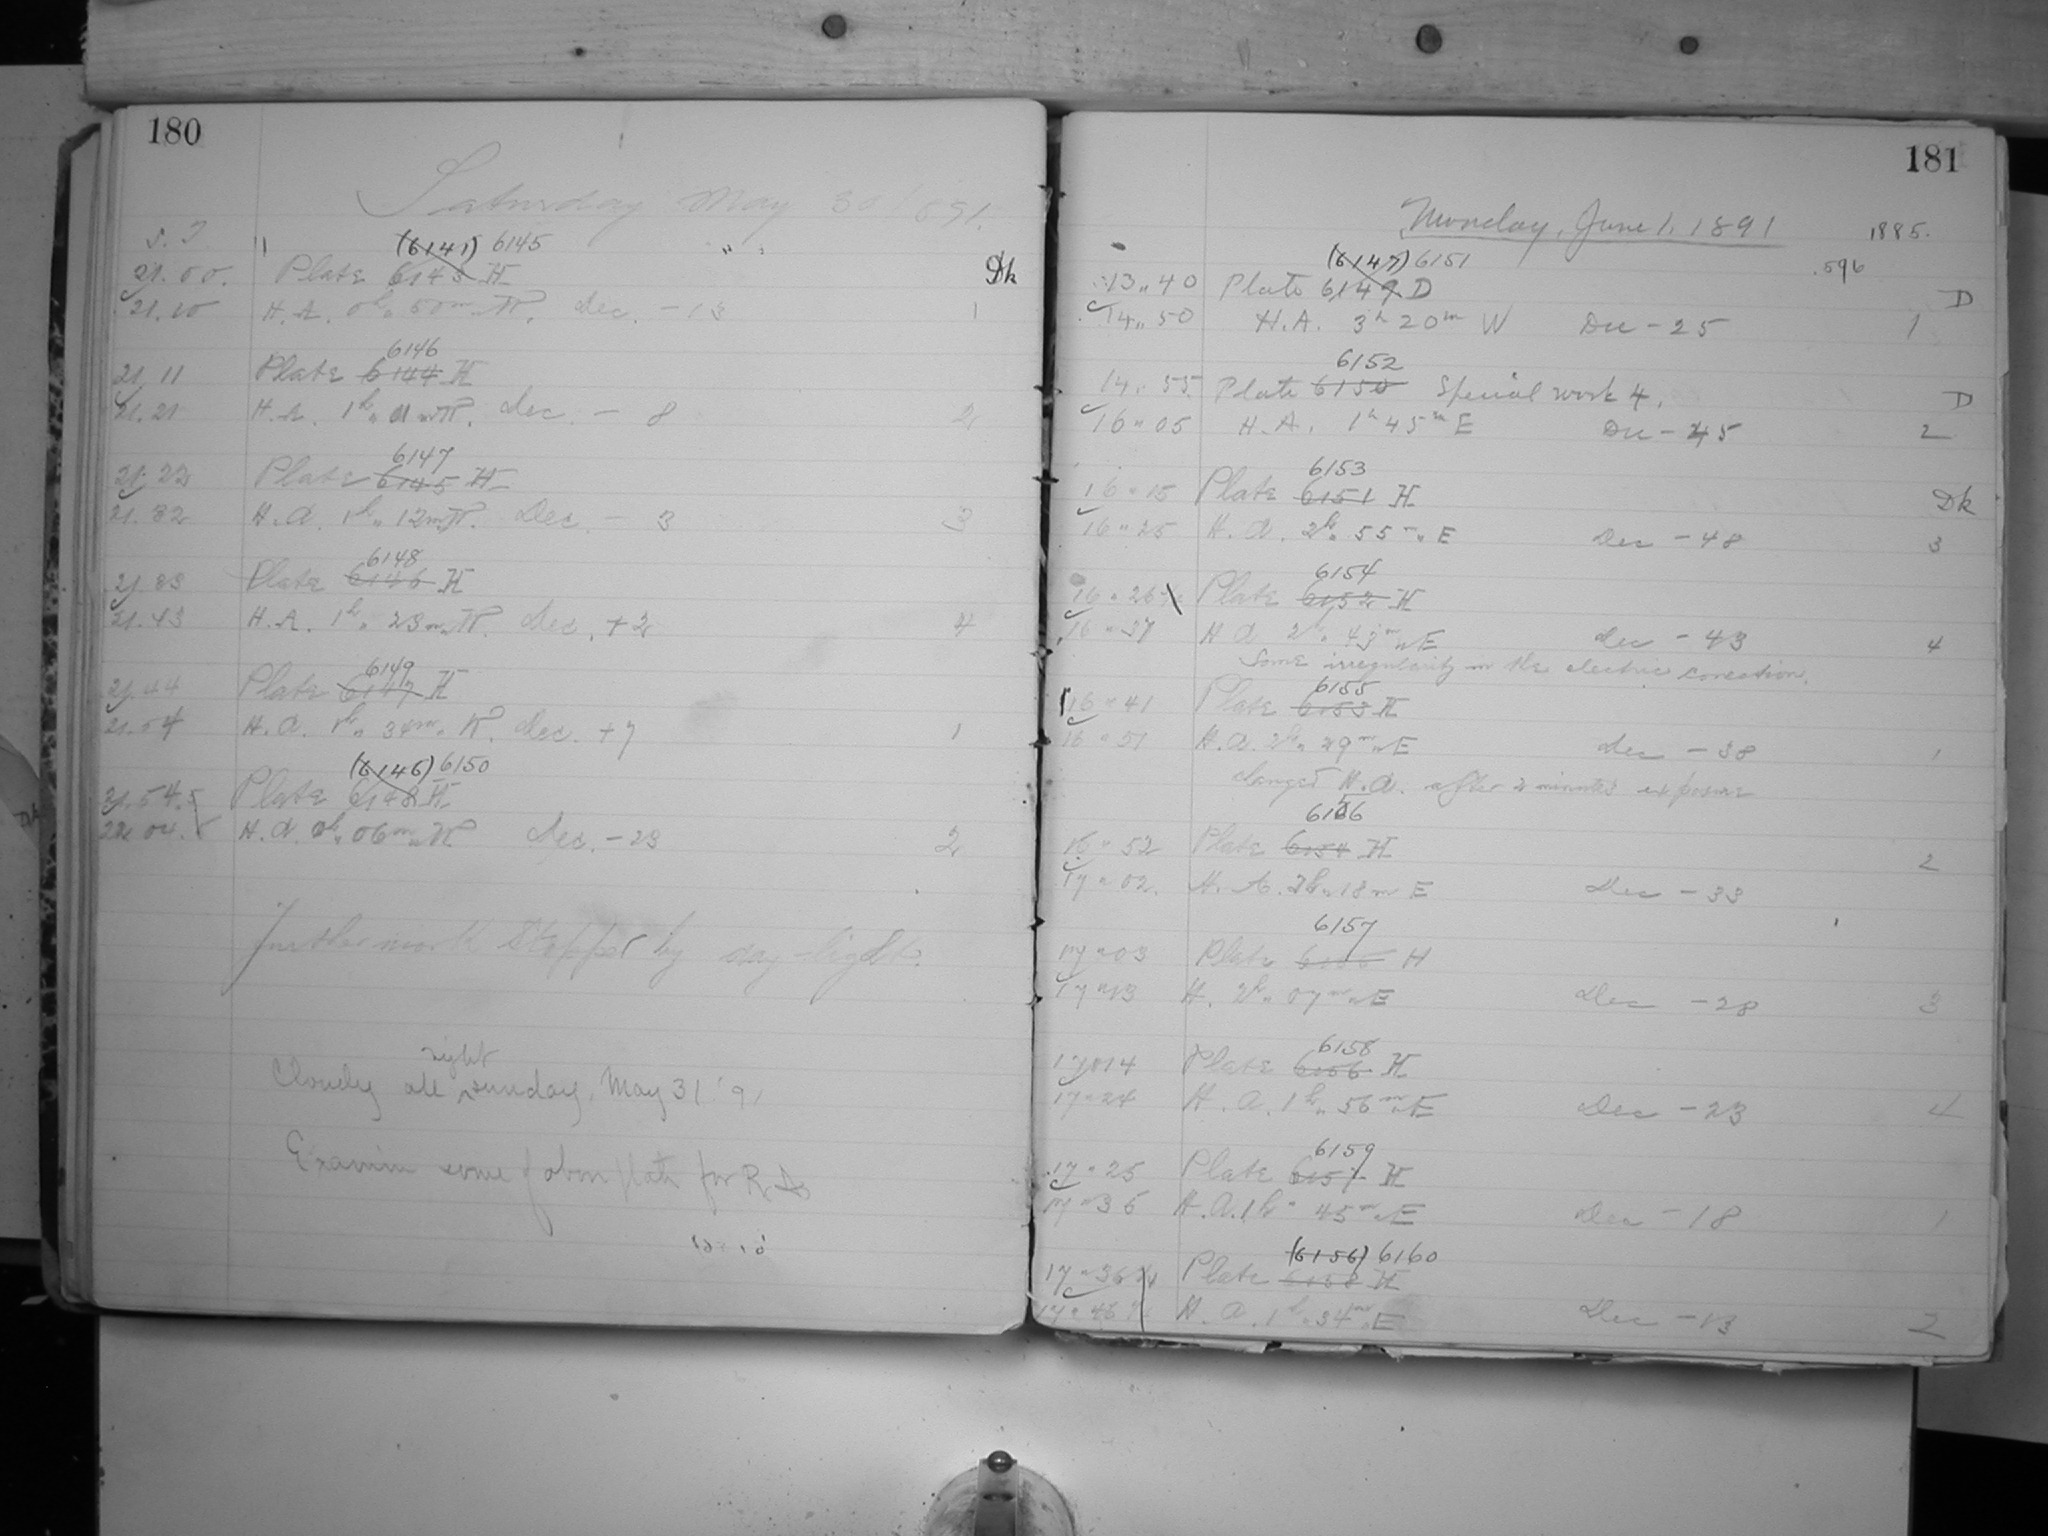 180
Saturday May 30 1891.
S. T.
(6141) 6145
21.00. Plate 6143 H Dk
21.10 H.A. 0h 50m W. Dec. -13 1
6146
21.11 Plate 6144 H
21.21 H.A. 1h 01m W. Dec. - 8 2
6147
21.22 Plate 6145 H
21.32 H.A. 1h 12m W. Dec. - 3 3
6148
21.33 Plate 6146 H
21.43 H.A. 1h 23m W. Dec. +2 4
6149
21.44 Plate 6147 H
21.54 H.A. 1h 34m W. Dec. +7 1
(6146) 6150
21.54.5 Plate 6148 H
22.04. H.A. 06m W Dec. -23 2
Further work stopped by day-light.
night
Cloudy all sunday, May 31 '91
Examine some of above plates for R A
181
Monday, June 1, 1891 1885.
(6147) 6151 .596
13 40 Plate 6149 D D
14 50 H.A. 3h 20m W Dec -25 1
6152
14 55 Plate 6150 Special work 4. D
16 05 H.A. 1h 45m E Dec -45 2
6153
16 15 Plate 6151 H Dk
16 25 H.A. 2h 55m E Dec -48 3
6154
16 26 Plate 6152 H
16 37 H A 2h 43m E Dec -43 4
Some irregularity in the electric conection.
6155
16 41 Plate 6153 H
16 51 H.A. 2h 29m E Dec -38 1
changed H.A. after 2 minutes exposure
6156
16 52 Plate 6154 H 2
17 02. H.A. 2h 18m E Dec -33
6157
17 03 Plate 6155 H
17 13 H. 2h 07m E Dec -28 3
6158
17 14 Plate 6156 H
17 24 H.A. 1h 56m E Dec -23 4
6159
17 25 Plate 6157 H
17 36 H.A. 1h 45m E Dec -18 1
(6156) 6160
17 36 Plate 6158 H
17 46 H.A. 1h 34m E Dec -13 2